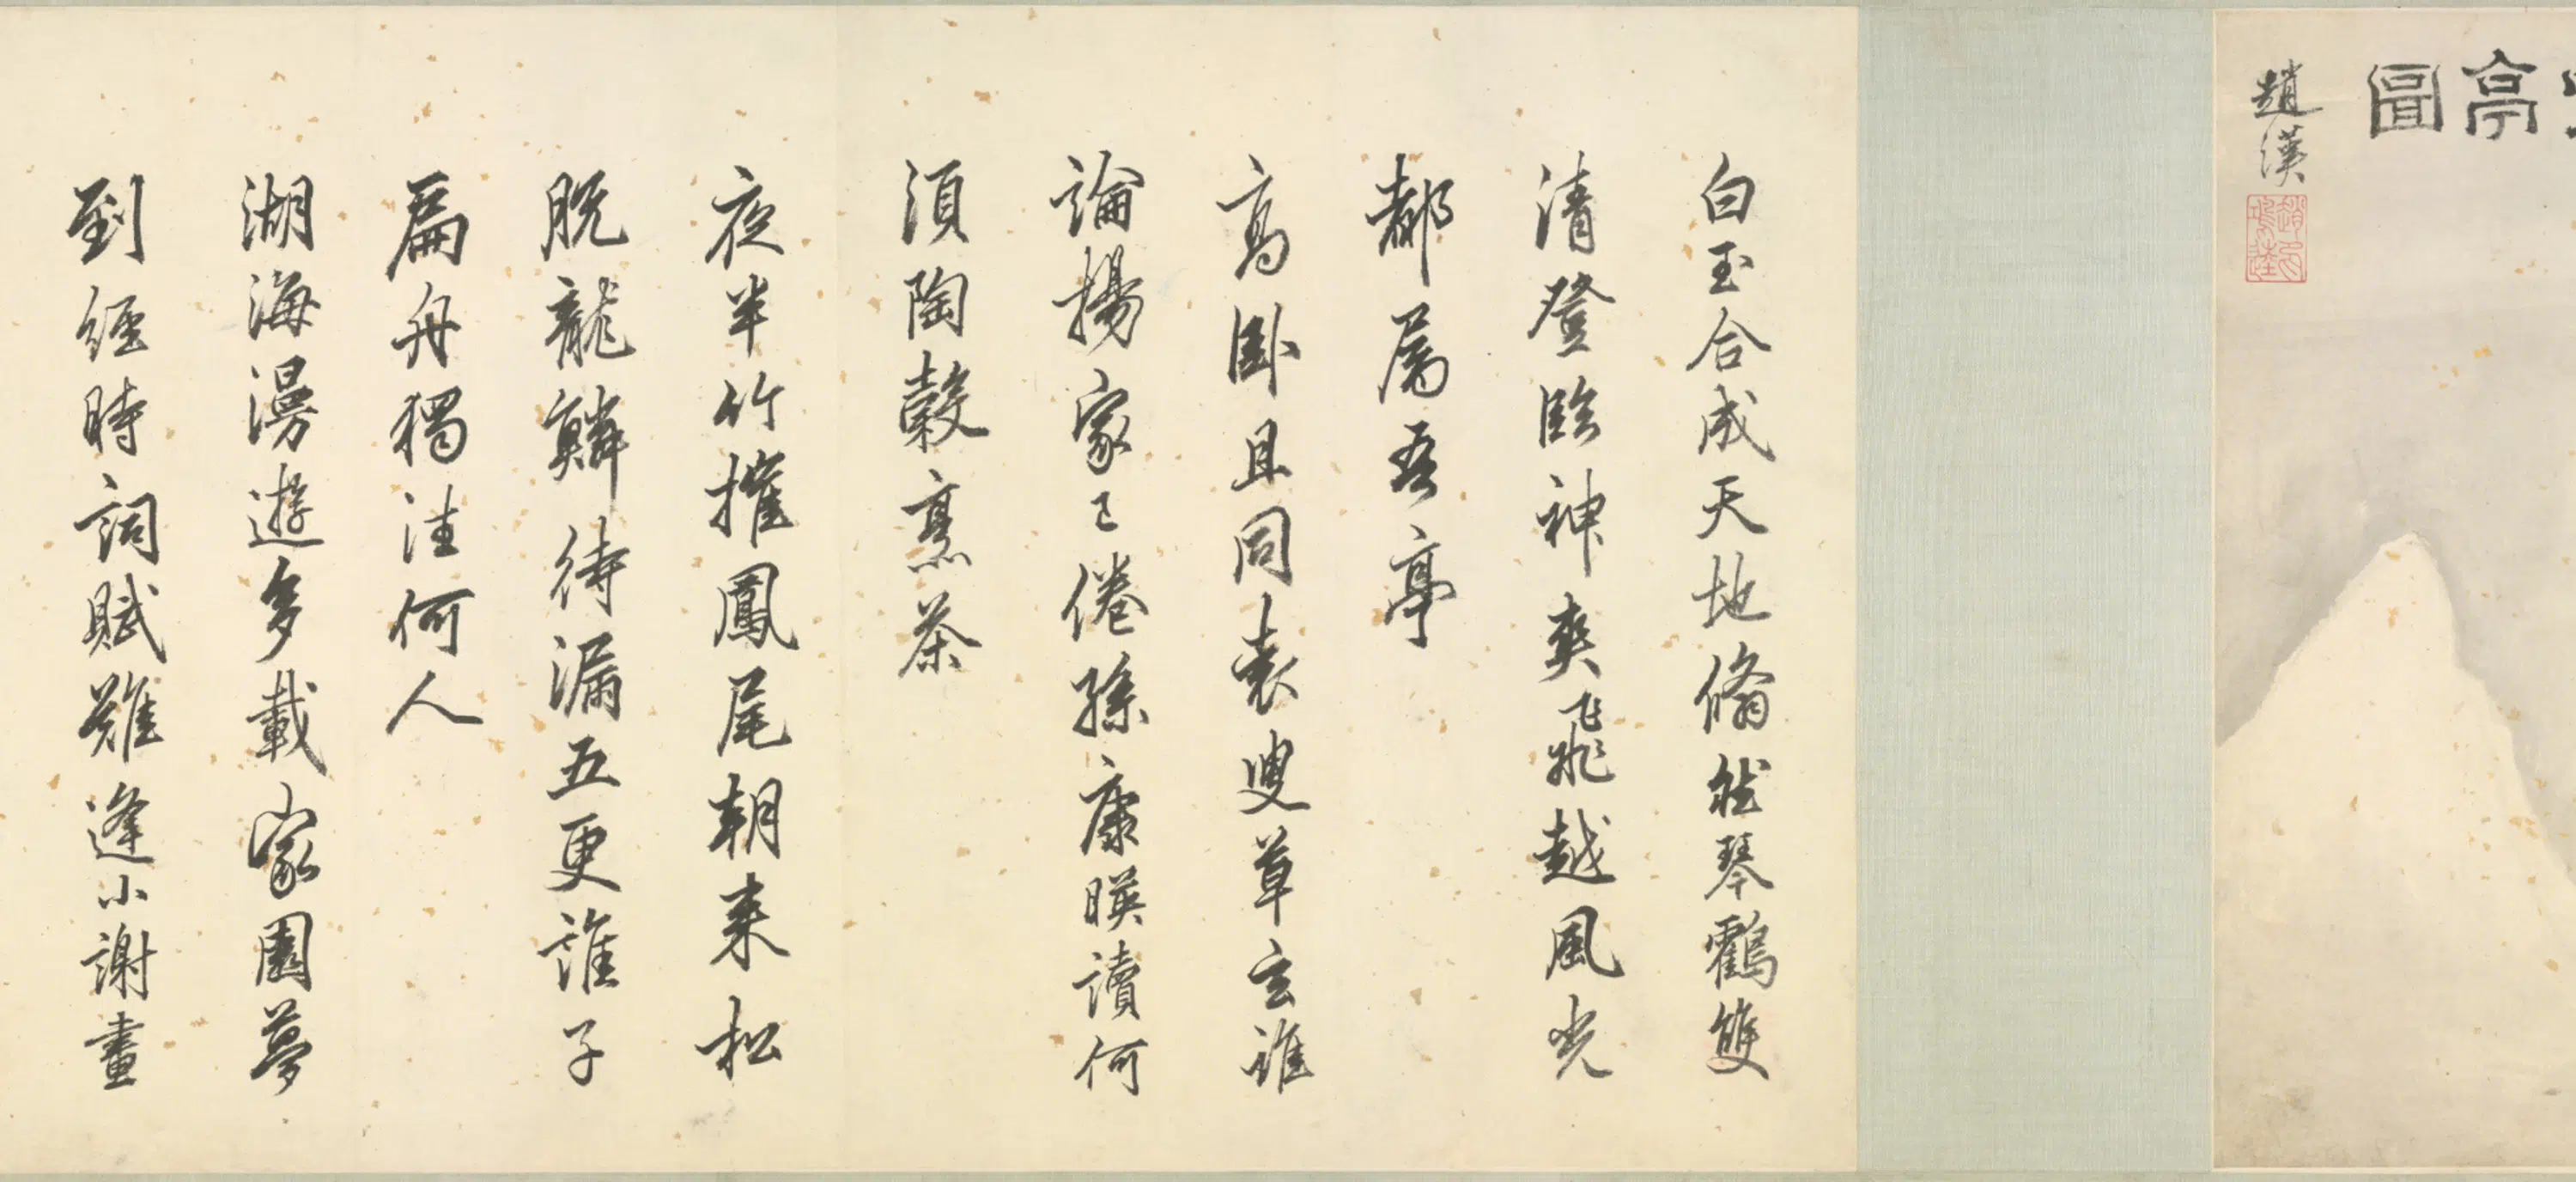 亭圖
趙漢
白玉合成天地翛然琴鶴雙
清登臨神爽飛越風光
都屬吾亭
高臥且同袁叟草玄誰
論揚家已倦孫康映讀何
須陶穀烹茶
夜半竹摧鳳尾朝來松
脫龍鱗待漏五更誰子
扁舟獨往何人
湖海漫遊多載家園夢
到經時詞賦難逢小謝畫